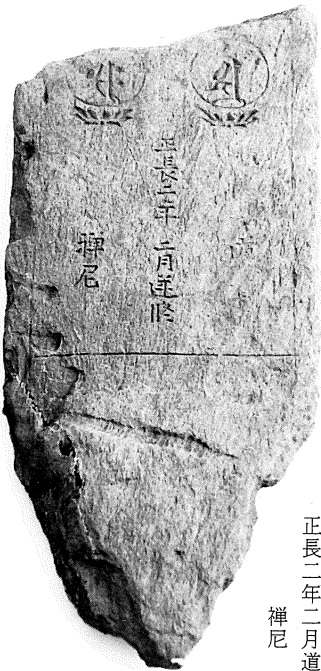 正長二年 二月逆修
禅尼
正長二年二月道
禅尼